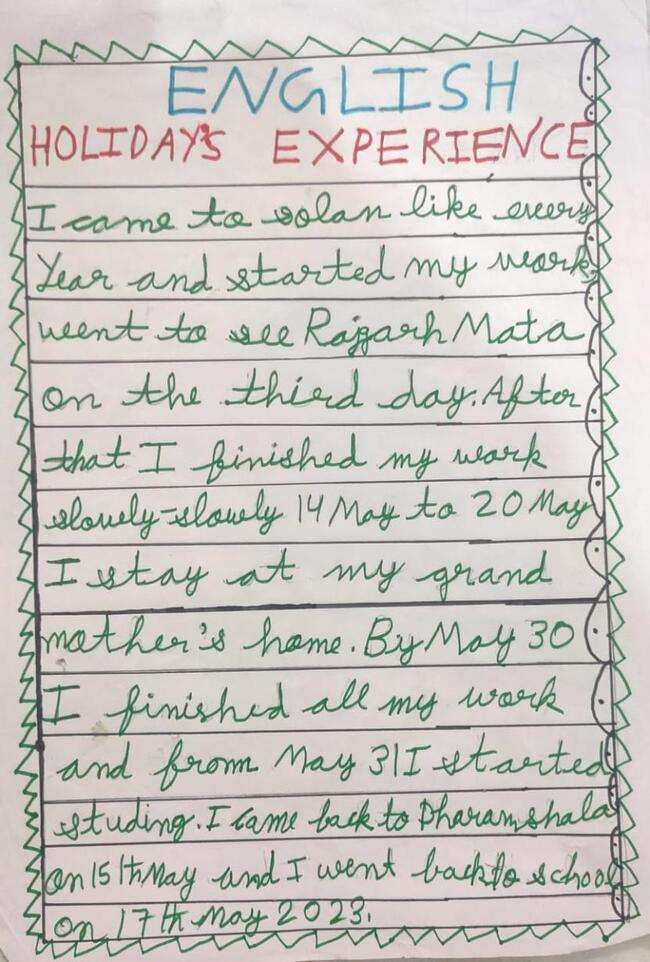 ENGLISH
HOLIDAY'S EXPERIENCE
I came to solan like every
Year and started my work,
went to see Rajgarh Mata
on the third day. After
that I finished my work
slowly-slowly 14 May to 20 May
I stay at my grand
mother's home. By May 30
I finished all my work
and from May 31 I started
studing. I came back to Dharamshala
on 15th May and I went back to school
on 17th May 2023.